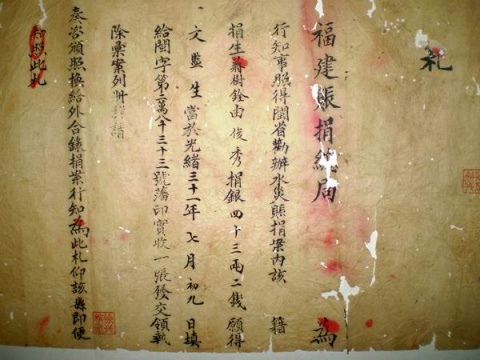 札
福建賑捐總局 為
行知事照得閩省勸辦水災賑捐案內該 籍
捐生蔣樹銓由俊秀捐銀四十三兩二錢願得
文監生當於光緒三十一年七月初九日填
給閩字第萬八千三十三號藩印實收一張發交領執
除彙案列冊詳請
奏咨頒照換給外合錄捐案行知為此札仰該縣即便
知照此札